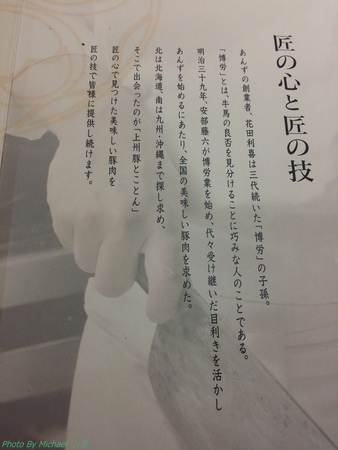 匠の心と匠の技
あんずの創業者 花田利喜は三代続いた「博労」の子孫。
「博労」とは、牛馬の良否を見分けることに巧みな人のことである。
明治三十九年、安部藤六が博労業を始め、代々受け継いだ目利きを活かし
あんずを始めるにあたり、全国の美味しい豚肉を求めた。
北は北海道、南は九州・沖縄まで探し求め、
そこで出会ったのが「上州豚とことん」
匠の心で見つけた美味しい豚肉を
匠の技で皆様に提供し続けます。
Photo By Michael